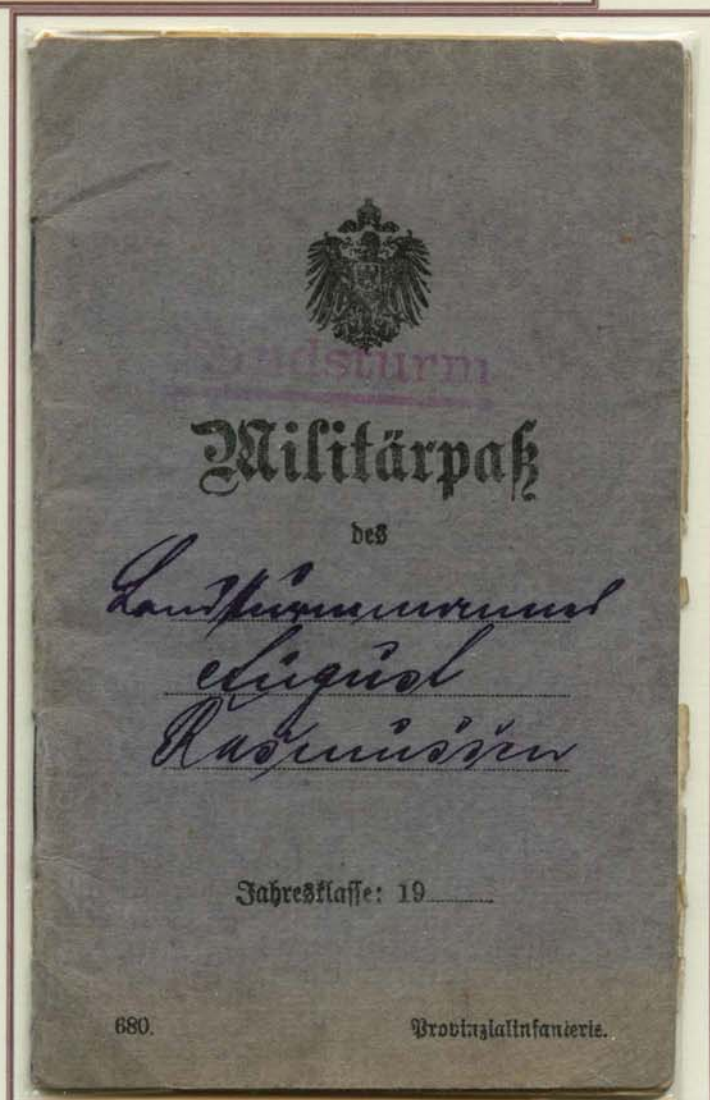 Landsturm
Militärpaß
des
Landsturmmannes
August
Rasmussen
Jahresklasse: 19
680.
Provinzialinfanterie.